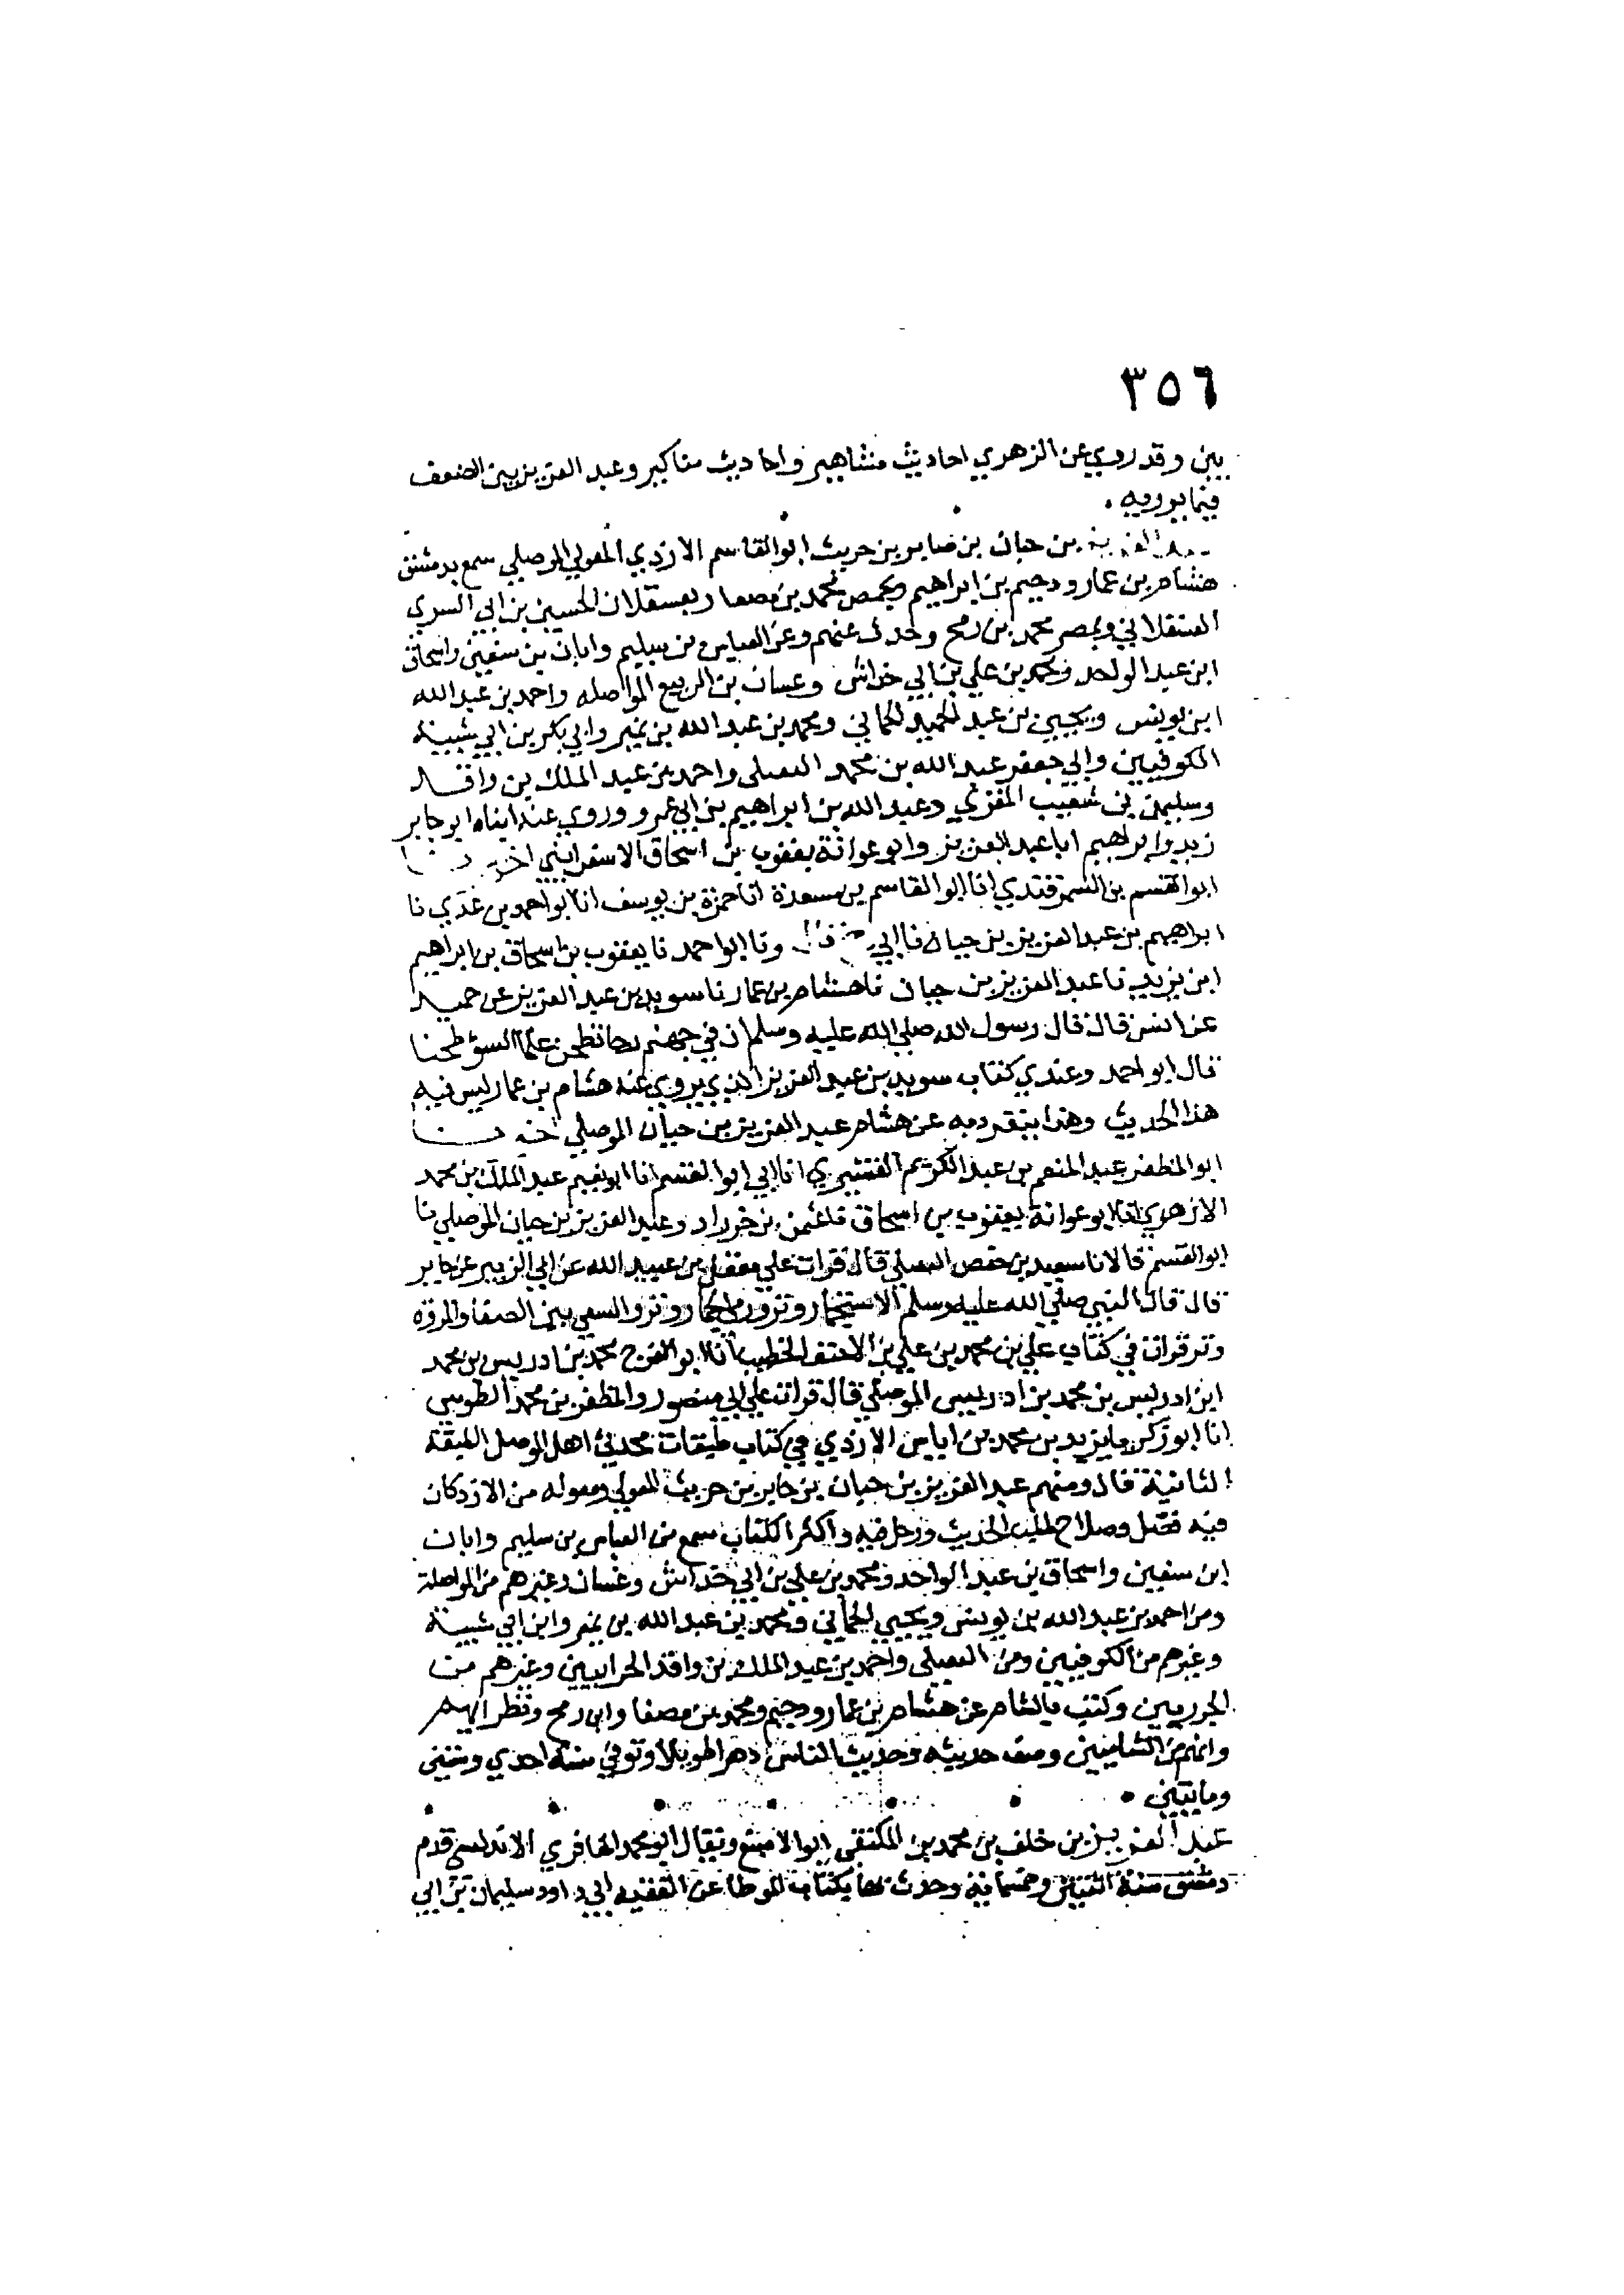 ٣٥٦
بين وقد روى عن الزهري احاديث مشاهير واحاديث مناكير وعبد العزيز بين الضعف
فيما يرويه
بن حبان بن صابر بن حريث ابو القاسم الازدي المعولي الموصلي سمع بدمشق
هشام بن عمار ودحيم بن ابراهيم وبحمص محمد بن مصفا وبعسقلان الحسين بن ابي السري
العسقلاني وبمصر محمد بن رمح وحدث عنهم وعن العباس بن سليم وابان بن سفين واسحاق
ابن عبد الواحد ومحمد بن علي بن ابي خداش وغسان بن الربيع المواصله واحمد بن عبد الله
ابن يونس ويحيى بن عبد الحميد الحماني ومحمد بن عبد الله بن نمير وابي بكر بن ابي شيبة
الكوفيين وابي جعفر عبد الله بن محمد النفيلي واحمد بن عبد الملك بن واقد
وسليمن بن شعيب وعبد الله بن ابراهيم بن ابي عمرو وروى عنه ابناه ابو جابر
زيد وابراهيم ابنا عبد العزيز وابو عوانة يعقوب بن اسحاق الاسفرايني
ابو القسم بن السمرقندي انا ابو القاسم بن مسعدة انا حمزة بن يوسف انا ابو احمد بن عدي نا
ابراهيم بن عبد العزيز بن حيان نا ابي ونا ابو احمد نا يعقوب بن اسحاق بن ابراهيم
ابن يزيد نا عبد العزيز بن حبان نا هشام بن عمار نا سويد بن عبد العزيز عن حميد
عن انس قال قال رسول الله صلي الله عليه وسلم ان في جهنم رحا تطحن علما السوء طحنا
قال ابو احمد وعندي كتاب سويد بن عبد العزيز الذي يروي عنه هشام بن عمار ليس فيه
هذا الحديث وهذا يتفرد به عن هشام عبد العزيز بن حيان الموصلي
ابو المظفر عبد المنعم بن عبد الكريم القشيري انا ابي ابو القسم انا ابو نعيم عبد الملك بن محمد
الازهري انا ابو عوانة يعقوب بن اسحاق نا عثمن بن خرزاد وعبد العزيز بن حيان الموصلي نا
ابو القسم قالا نا سعيد بن حفص النفيلي قال قرات علي معقل بن عبيد الله عن ابي الزبير عن جابر
قال قال النبي صلي الله عليه وسلم الاستجمار وتر ورمي الجمار وتر والسعي بين الصفا والمروه
وتر قرات في كتاب علي بن محمد بن علي بن الاحنف الخطيب انا ابو الفرج محمد بن ادريس بن محمد
ابن ادريس بن محمد بن ادريس الموصلي قال قرات علي ابي منصور والمظفر بن محمد الطوسي
انا ابو زكريا يزيد بن محمد بن اياس الازدي في كتاب طبقات محدثي اهل الموصل الطبقة
الثانية قال ومنهم عبد العزيز بن حيان بن جابر بن حريث المعولي ومعوله من الازد كان
فيه فضل وصلاح لطلب الحديث ورحل فيه واكثر الكتاب سمع من العباس بن سليم وابان
ابن سفين واسحاق بن عبد الواحد ومحمد بن علي بن ابي خداش وغسان وغيرهم من المواصلة
ومن احمد بن عبد الله بن يونس ويحيى الحماني ومحمد بن عبد الله بن نمير وابن ابي شيبة
وغيرهم من الكوفيين ومن النفيلي واحمد بن عبد الملك بن واقد الحرانيين وغيرهم من
الجزريين وكتب بالشام عن هشام بن عمار ودحيم ومحمد بن مصفا وابن رمح ونظرائهم
من الشاميين وصنف حديثه وحديث الناس دهرا طويلا وتوفي سنة احدي وستين
ومايتين
عبد العزيز بن خلف بن محمد بن المكتفي ابو الاصبغ ويقال ابو محمد المعافري الاندلسي قدم
دمشق سنة اثنتين وخمسماية وحدث بها بكتاب الموطا عن الفقيه ابي داود سليمان بن ابي